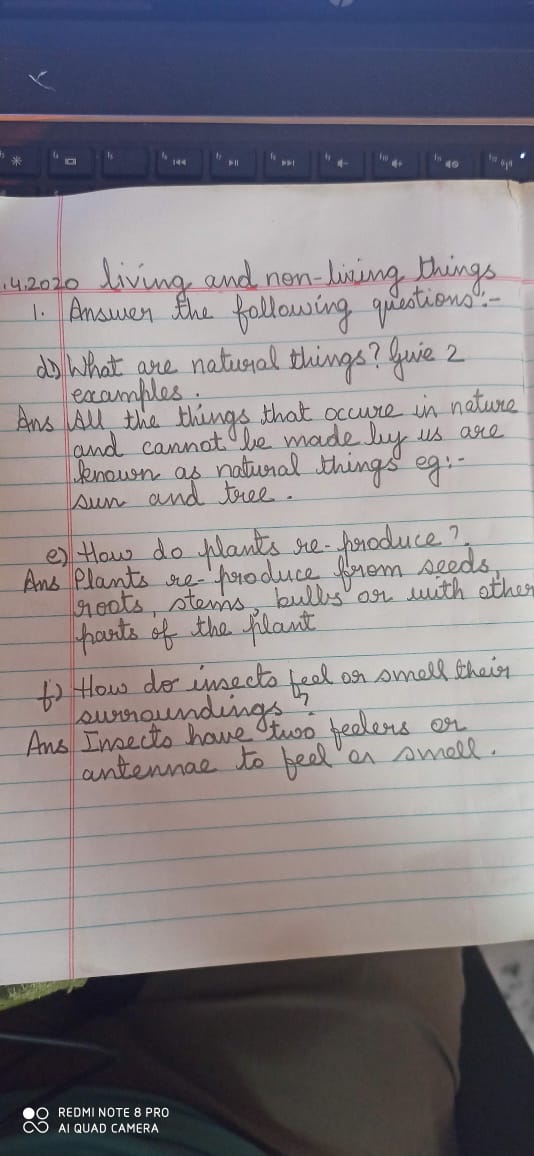 .4.2020 living and non-living things
1. Answer the following questions:-
d) What are natural things? Give 2
examples.
Ans All the things that occure in nature
and cannot be made by us are
known as natural things eg:-
sun and tree.
e) How do plants re-produce?
Ans Plants re-produce from seeds,
roots, stems, bulbs or with other
parts of the plant
f) How do insects feel or smell their
surroundings?
Ans Insects have two feelers or
antennae to feel or smell.
REDMI NOTE 8 PRO
AI QUAD CAMERA